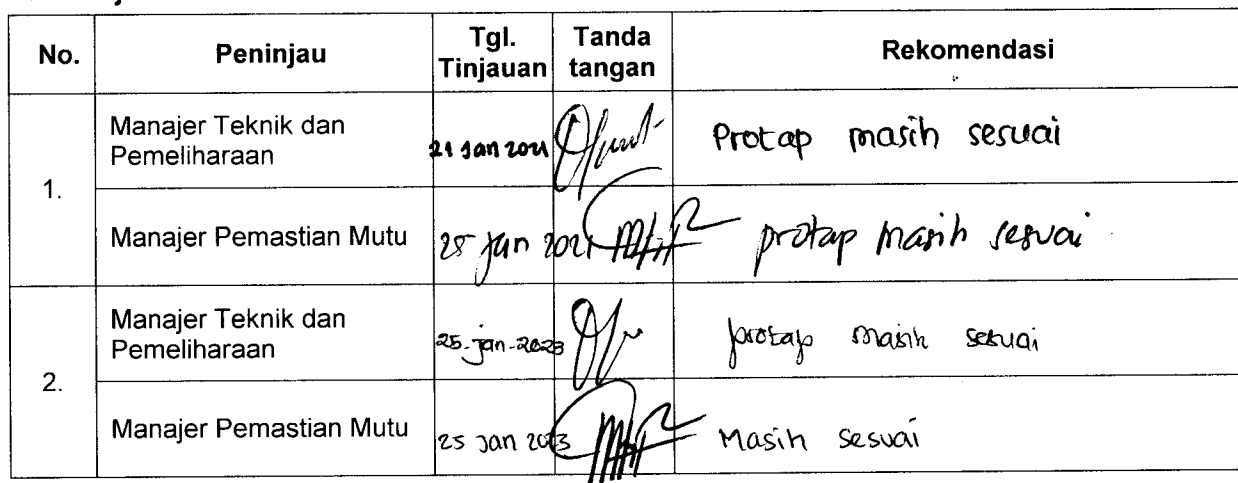 No. Peninjau Tgl. Tinjauan Tanda tangan Rekomendasi
1. Manajer Teknik dan Pemeliharaan 21 Jan 2021 Protap masih sesuai
Manajer Pemastian Mutu 25 Jan 2021 protap masih sesuai
2. Manajer Teknik dan Pemeliharaan 25-jan-2023 protap masih sesuai
Manajer Pemastian Mutu 25 Jan 2023 Masih sesuai